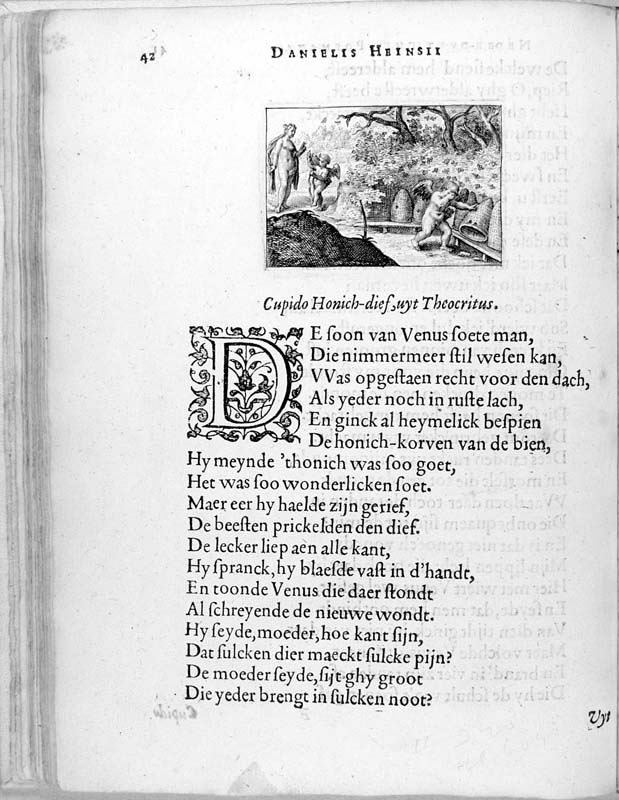 42 DANIELIS HEINSII
Cupido Honich-dief, uyt Theocritus.
DE soon van Venus soete man,
Die nimmermeer stil wesen kan,
VVas opgestaen recht voor den dach,
Als yeder noch in ruste lach,
En ginck al heymelick bespien
De honich-korven van de bien,
Hy meynde 'thonich was soo goet,
Het was soo wonderlicken soet.
Maer eer hy haelde zijn gerief,
De beesten prickelden den dief.
De lecker liep aen alle kant,
Hy spranck, hy blaesde vast in d'handt,
En toonde Venus die daer stondt
Al schreyende de nieuwe wondt.
Hy seyde, moeder, hoe kant sijn,
Dat sulcken dier maeckt sulcke pijn?
De moeder seyde, sijt ghy groot
Die yeder brengt in sulcken noot?
Vyt